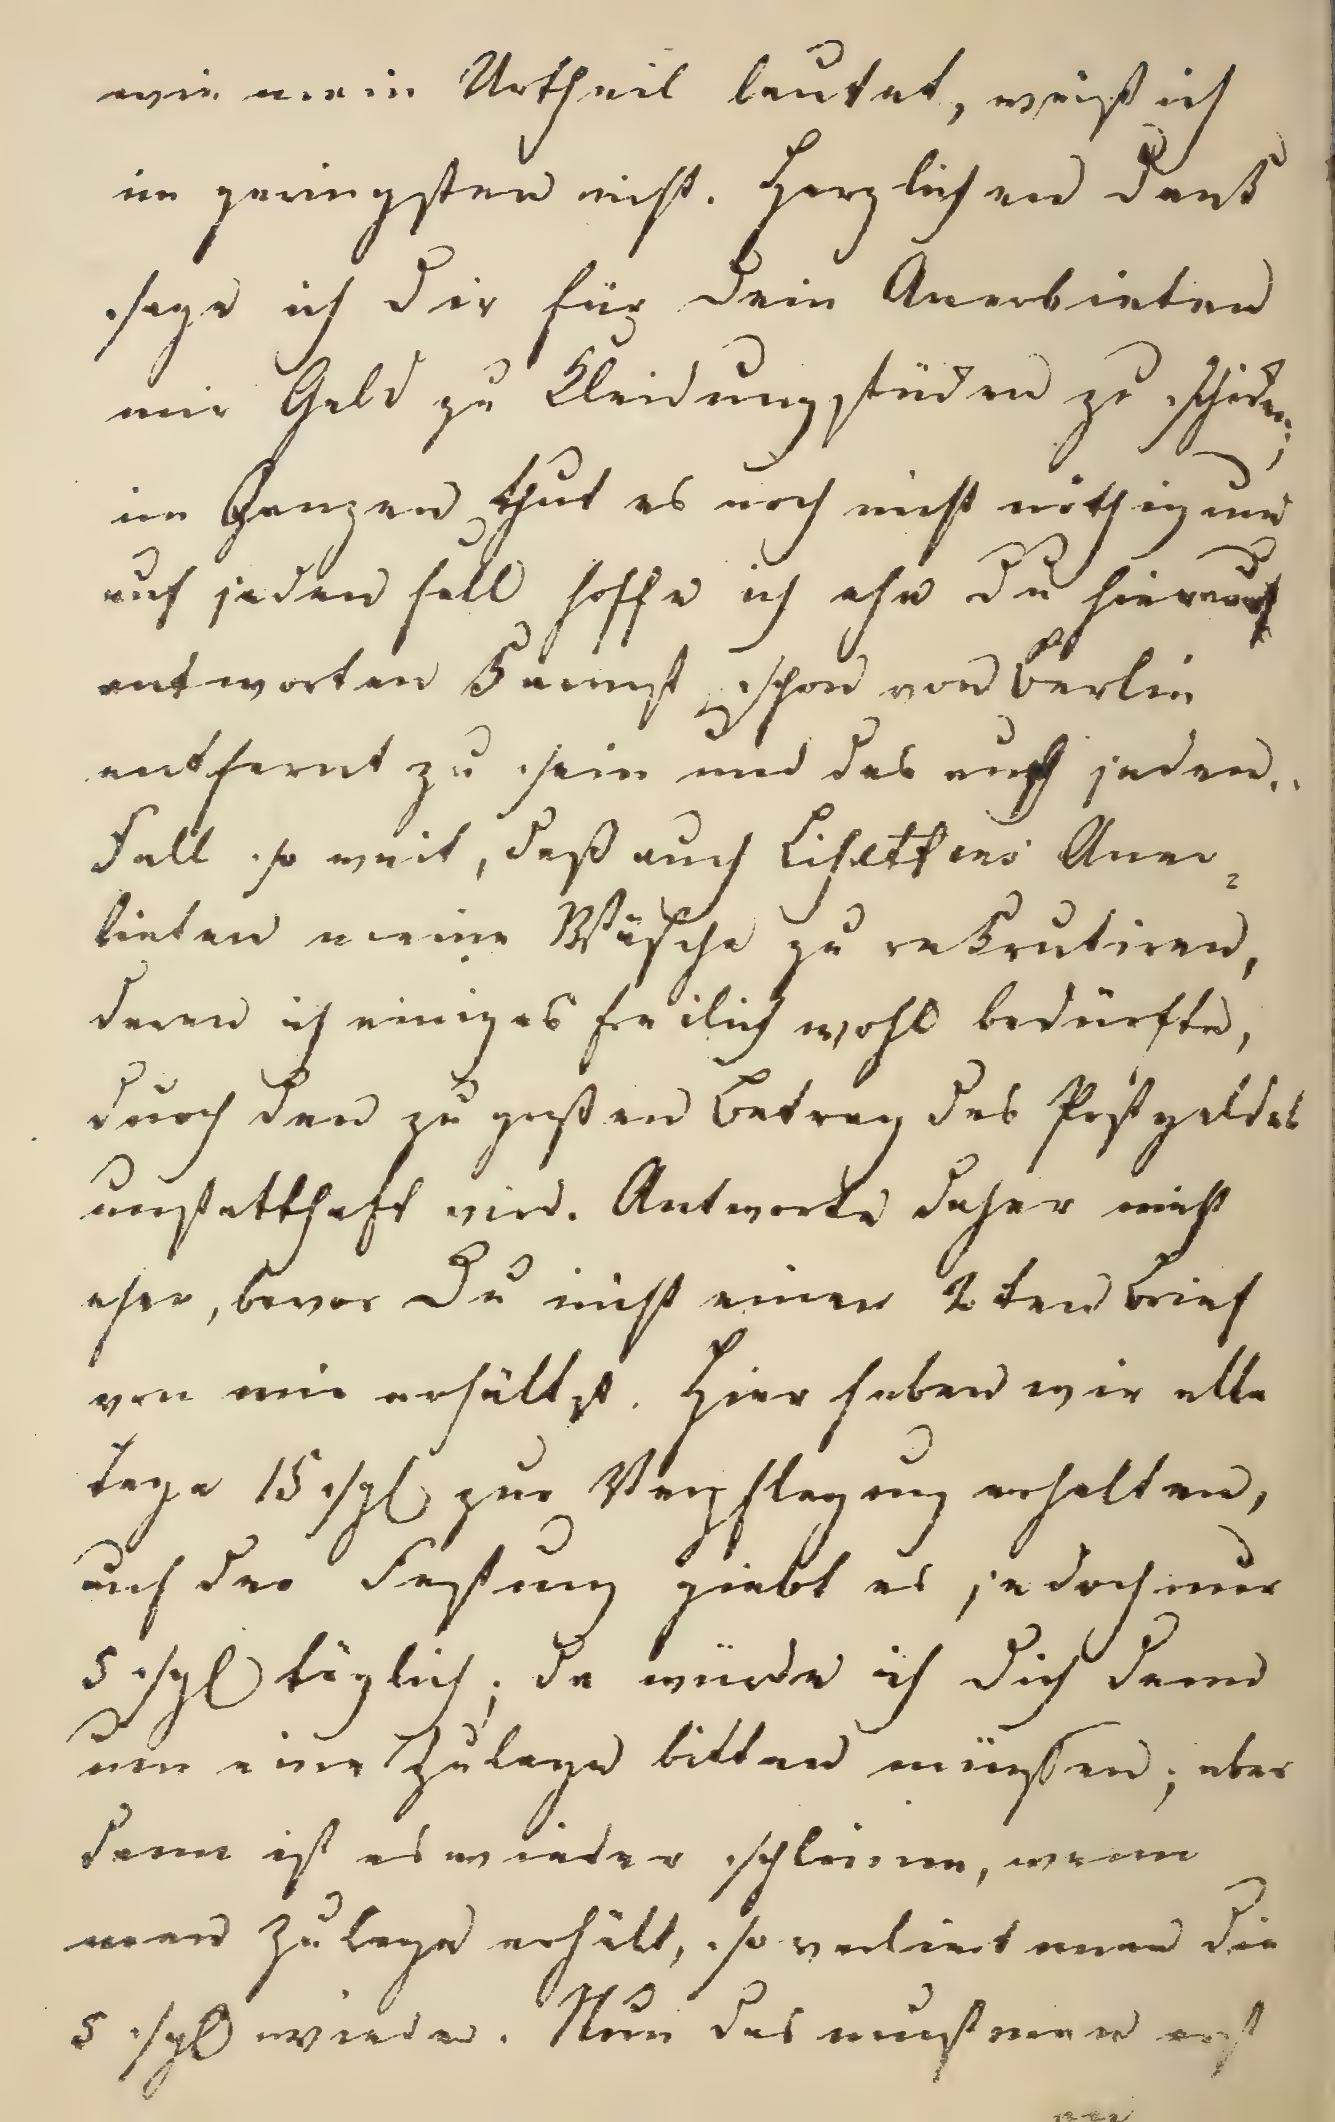 wie mein Urtheil lautet, weiß ich
im geringsten nicht. Herzlichen Dank
sage ich Dir für Dein Anerbieten
mir Geld zu Kleidungsstücken zu schicken;
im Ganzen thut es noch nicht nöthig und
auf jeden Fall hoffe ich ehe Du hierauf
antworten kannst schon von Berlin
entfernt zu sein und das auf jeden
Fall so weit, daß auch Lisettens Aner=
bieten meine Wäsche zu rekrutiren,
deren ich einiges freilich wohl bedürfte,
durch den zu großen Betrag des Postgeldes
unstatthaft wird. Antworte daher nicht
eher, bevor Du nicht einen 2ten Brief
von mir erhältst. Hier haben wir alle
Tage 15 sgl zur Verpflegung erhalten,
auf der Festung giebt es jedoch nur
5 sgl täglich; da würde ich Dich denn
um eine Zulage bitten müssen; aber
dann ist es wieder schlimm, wenn
man Zulage erhält, so verliert man die
5 sgl wieder. Nun das muß man erst